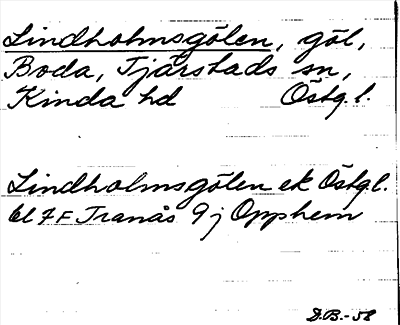 Lindholmsgölen, göl,
Boda, Tjärstads sn,
Kinda hd Östg.l.
Lindholmsgölen ek Östg.l.
bl 7F Tranås 9j Opphem
D.B.-58